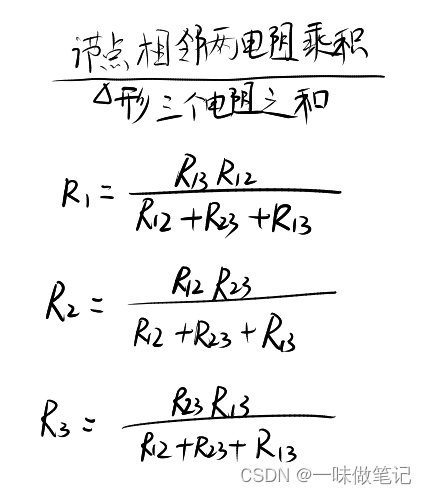 节点相邻两电阻乘积
△形三个电阻之和
R₁ = R₁₃ R₁₂ / R₁₂ + R₂₃ + R₁₃
R₂ = R₁₂ R₂₃ / R₁₂ + R₂₃ + R₁₃
R₃ = R₂₃ R₁₃ / R₁₂ + R₂₃ + R₁₃
CSDN @一味做笔记